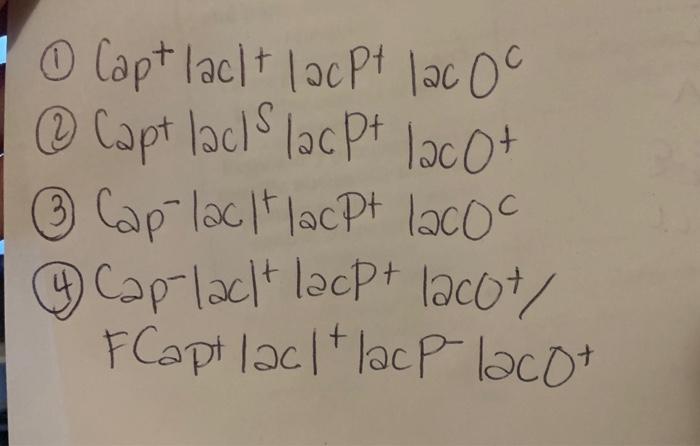 ① Cap+ lacI+ lacP+ lacOc
② Cap+ lacIS lacP+ lacO+
③ Cap- lacI+ lacP+ lacOc
④ Cap- lacI+ lacP+ lacO+/
FCap+ lacI+ lacP- lacO+